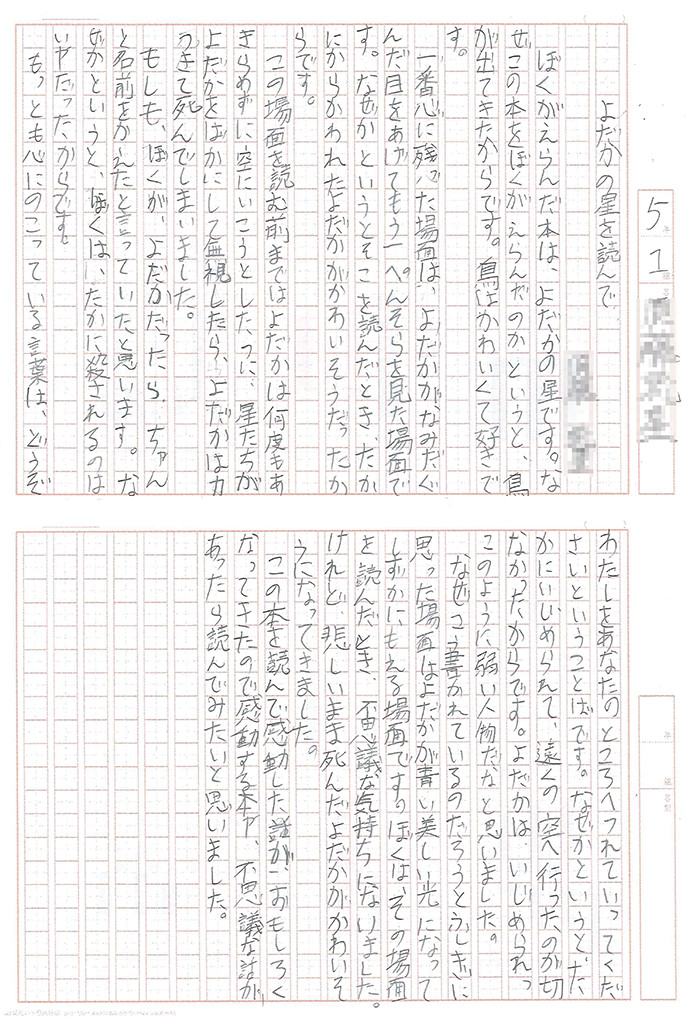 5年
1組
よだかの星を読んで
ぼくがえらんだ本は、よだかの星です。な
ぜこの本をぼくがえらんだのかというと、鳥
が出てきたからです。鳥はかわいくて好きで
す。
一番心に残った場面は、よだかがなみだぐ
んだ目をあげてもう一ぺんそらを見た場面で
す。なぜかというとそこを読んだとき、たか
にからかわれたよだかがかわいそうだったか
らです。
この場面を読む前まではよだかは何度もあ
きらめずに空にいこうとしたのに、星たちが
よだかをばかにして無視したら、よだかは力
つきて死んでしまいました。
もしも、ぼくが、よだかだったら、ちゃん
と名前をかえたと言っていたと思います。な
ぜかというと、ぼくは、たかに殺されるのは
いやだったからです。
もっとも心にのこっている言葉は、どうぞ
わたしをあなたのところへつれていってくだ
さいということばです。なぜかというと、た
かにいじめられて、遠くの空へ行ったのが切
なかったからです。よだかは、いじめられっ
このように弱い人物だなと思いました。
なぜこう書かれているのだろうとふしぎに
思った場面はよだかが青い美しい光になって
しずかにもえる場面です。ぼくは、その場面
を読んだとき、不思議な気持ちになりました。
けれど、悲しいまま死んだよだかがかわいそ
うになってきました。
この本を読んで感動した話が、おもしろく
なってきたので感動する本や、不思議な話が
あったら読んでみたいと思いました。
年
組
名前